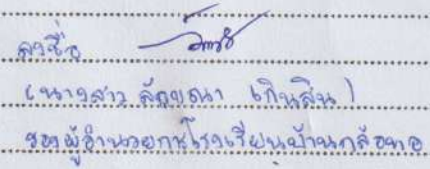 ลงชื่อ
(นางสาว ลักขณา เกินสิน)
รองผู้อำนวยการโรงเรียนบ้านกล้อทอ